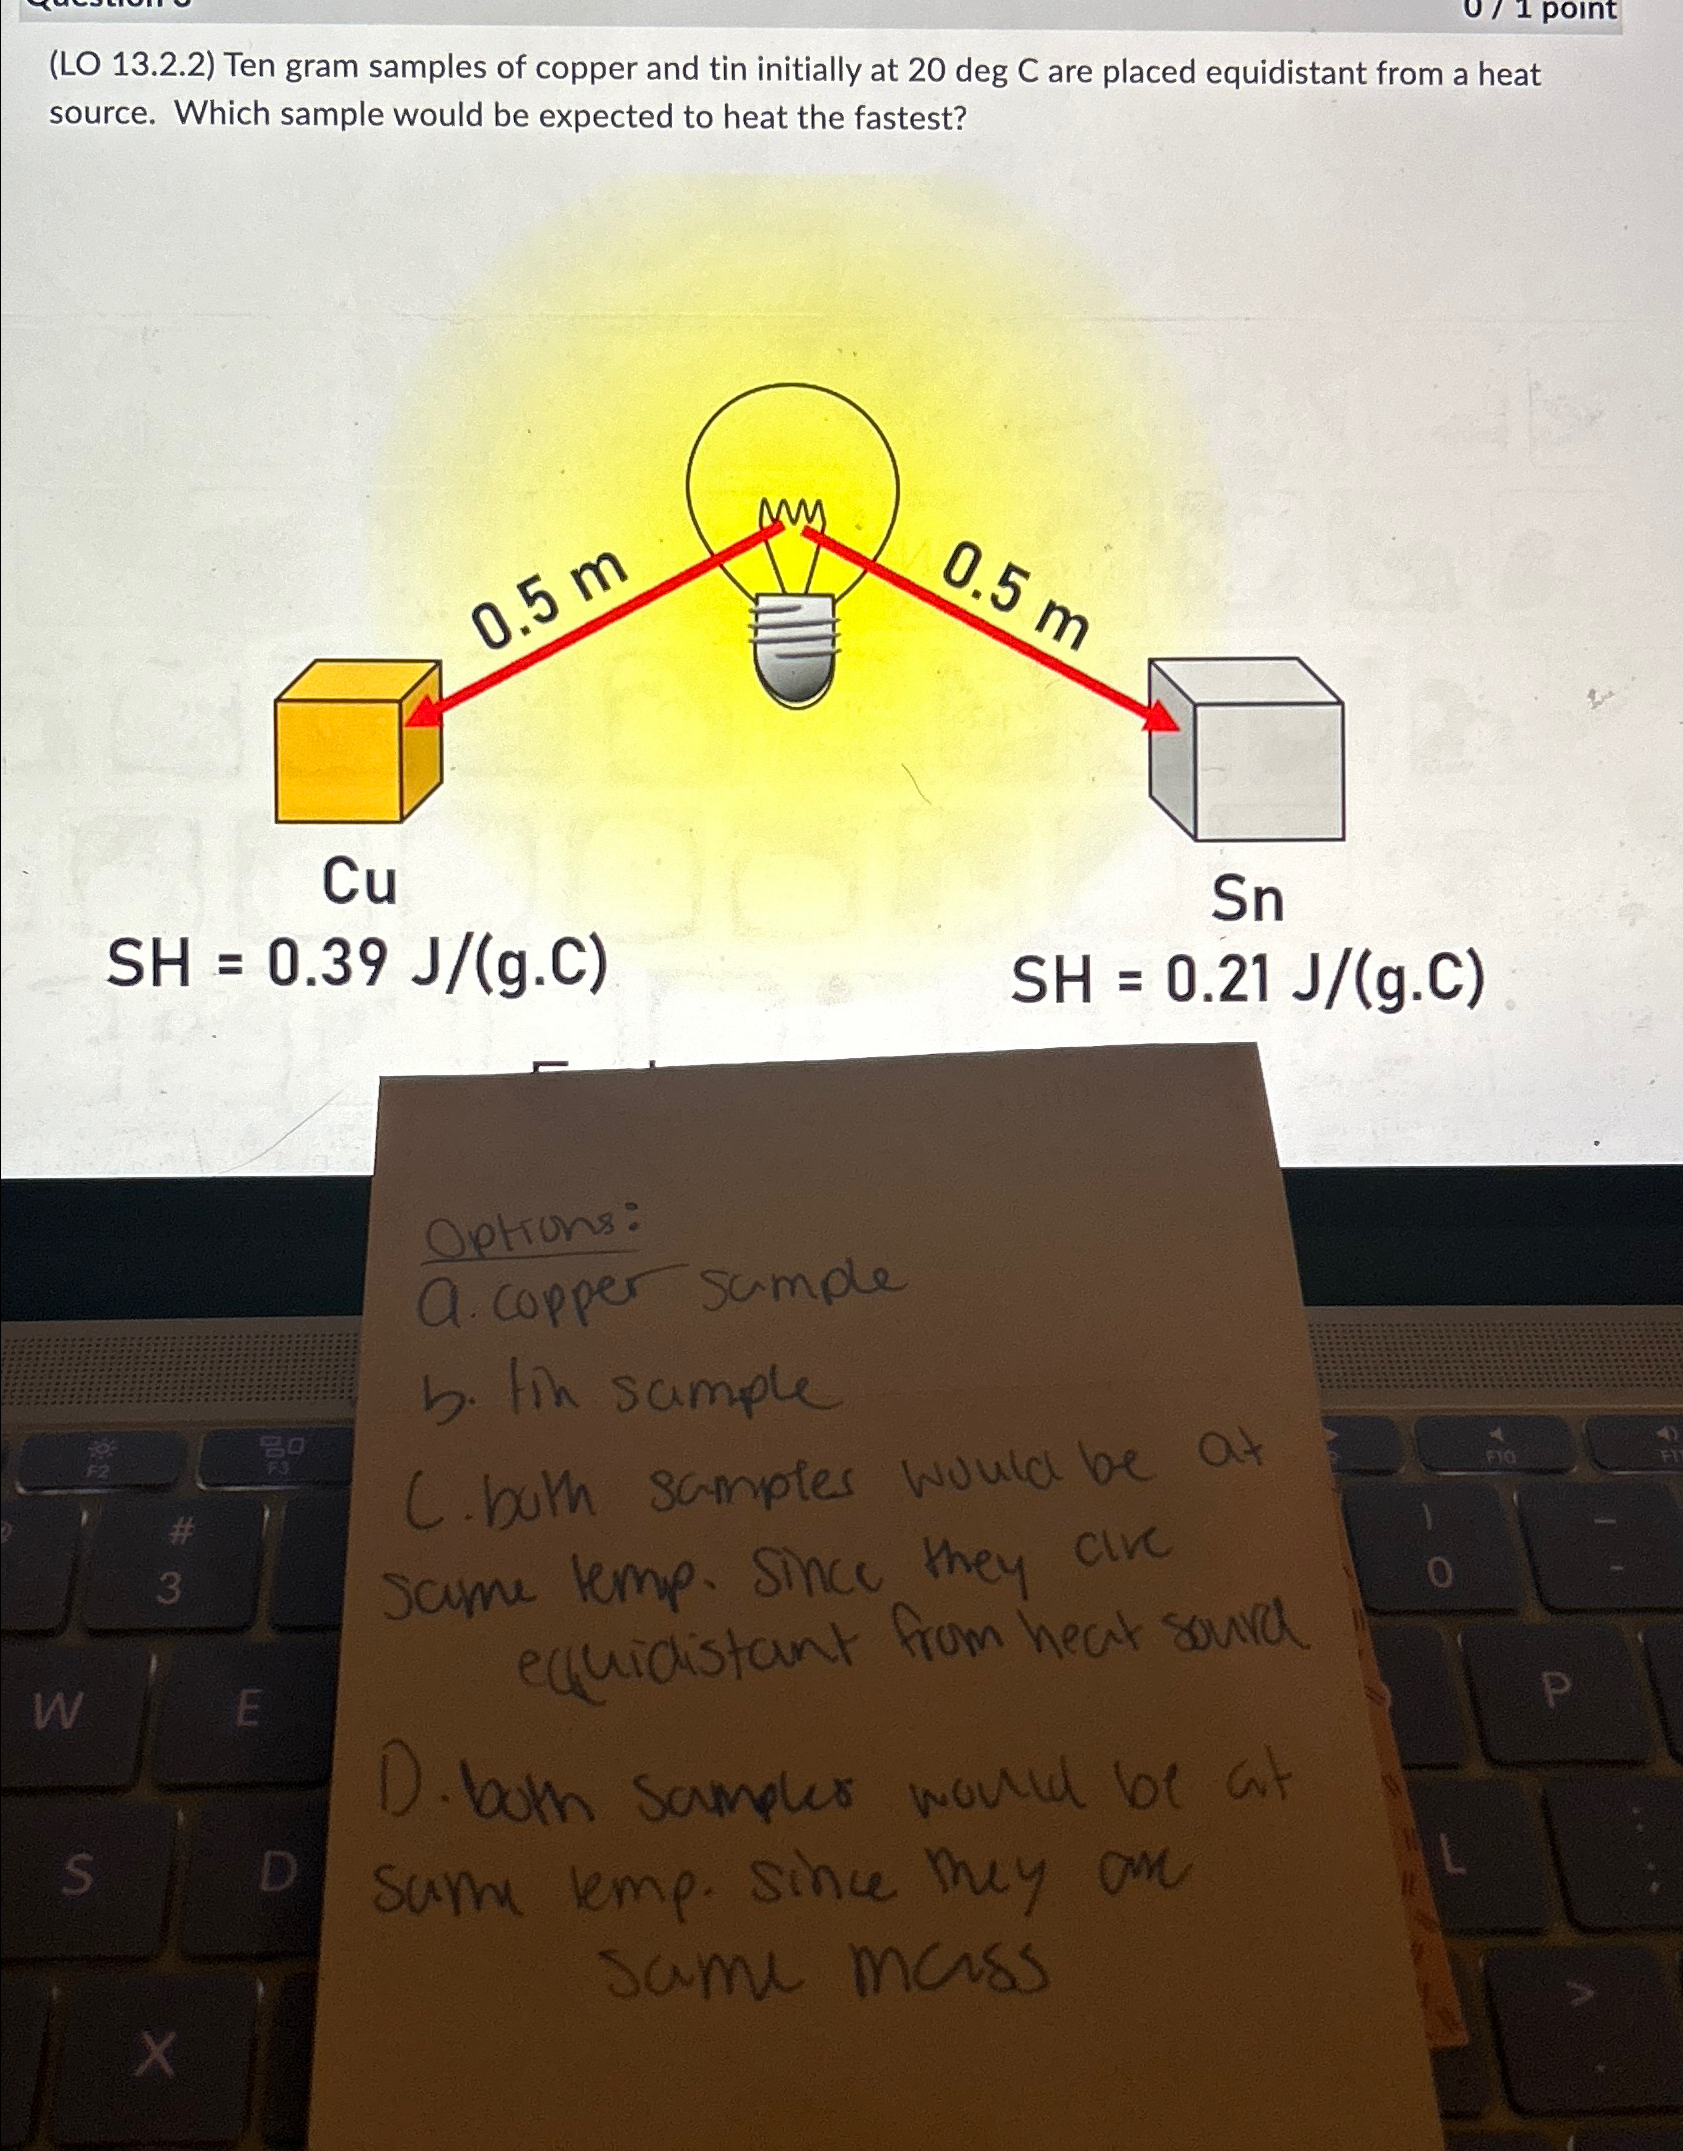 0 / 1 point
(LO 13.2.2) Ten gram samples of copper and tin initially at 20 deg C are placed equidistant from a heat
source. Which sample would be expected to heat the fastest?
0.5 m
0.5 m
Cu
SH = 0.39 J/(g.C)
Sn
SH = 0.21 J/(g.C)
Options:
a. copper sample
b. tin sample
C. both samples would be at
same temp. since they are
equidistant from heat
D. both samples would be at
same temp. since they are
same mass
F2
F3
F10
#
3
)
0
-
W
E
P
S
D
L
X
>